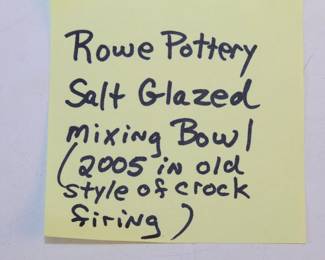 Rowe Pottery
Salt Glazed
Mixing Bowl
(2005 in old
style of crock
firing)